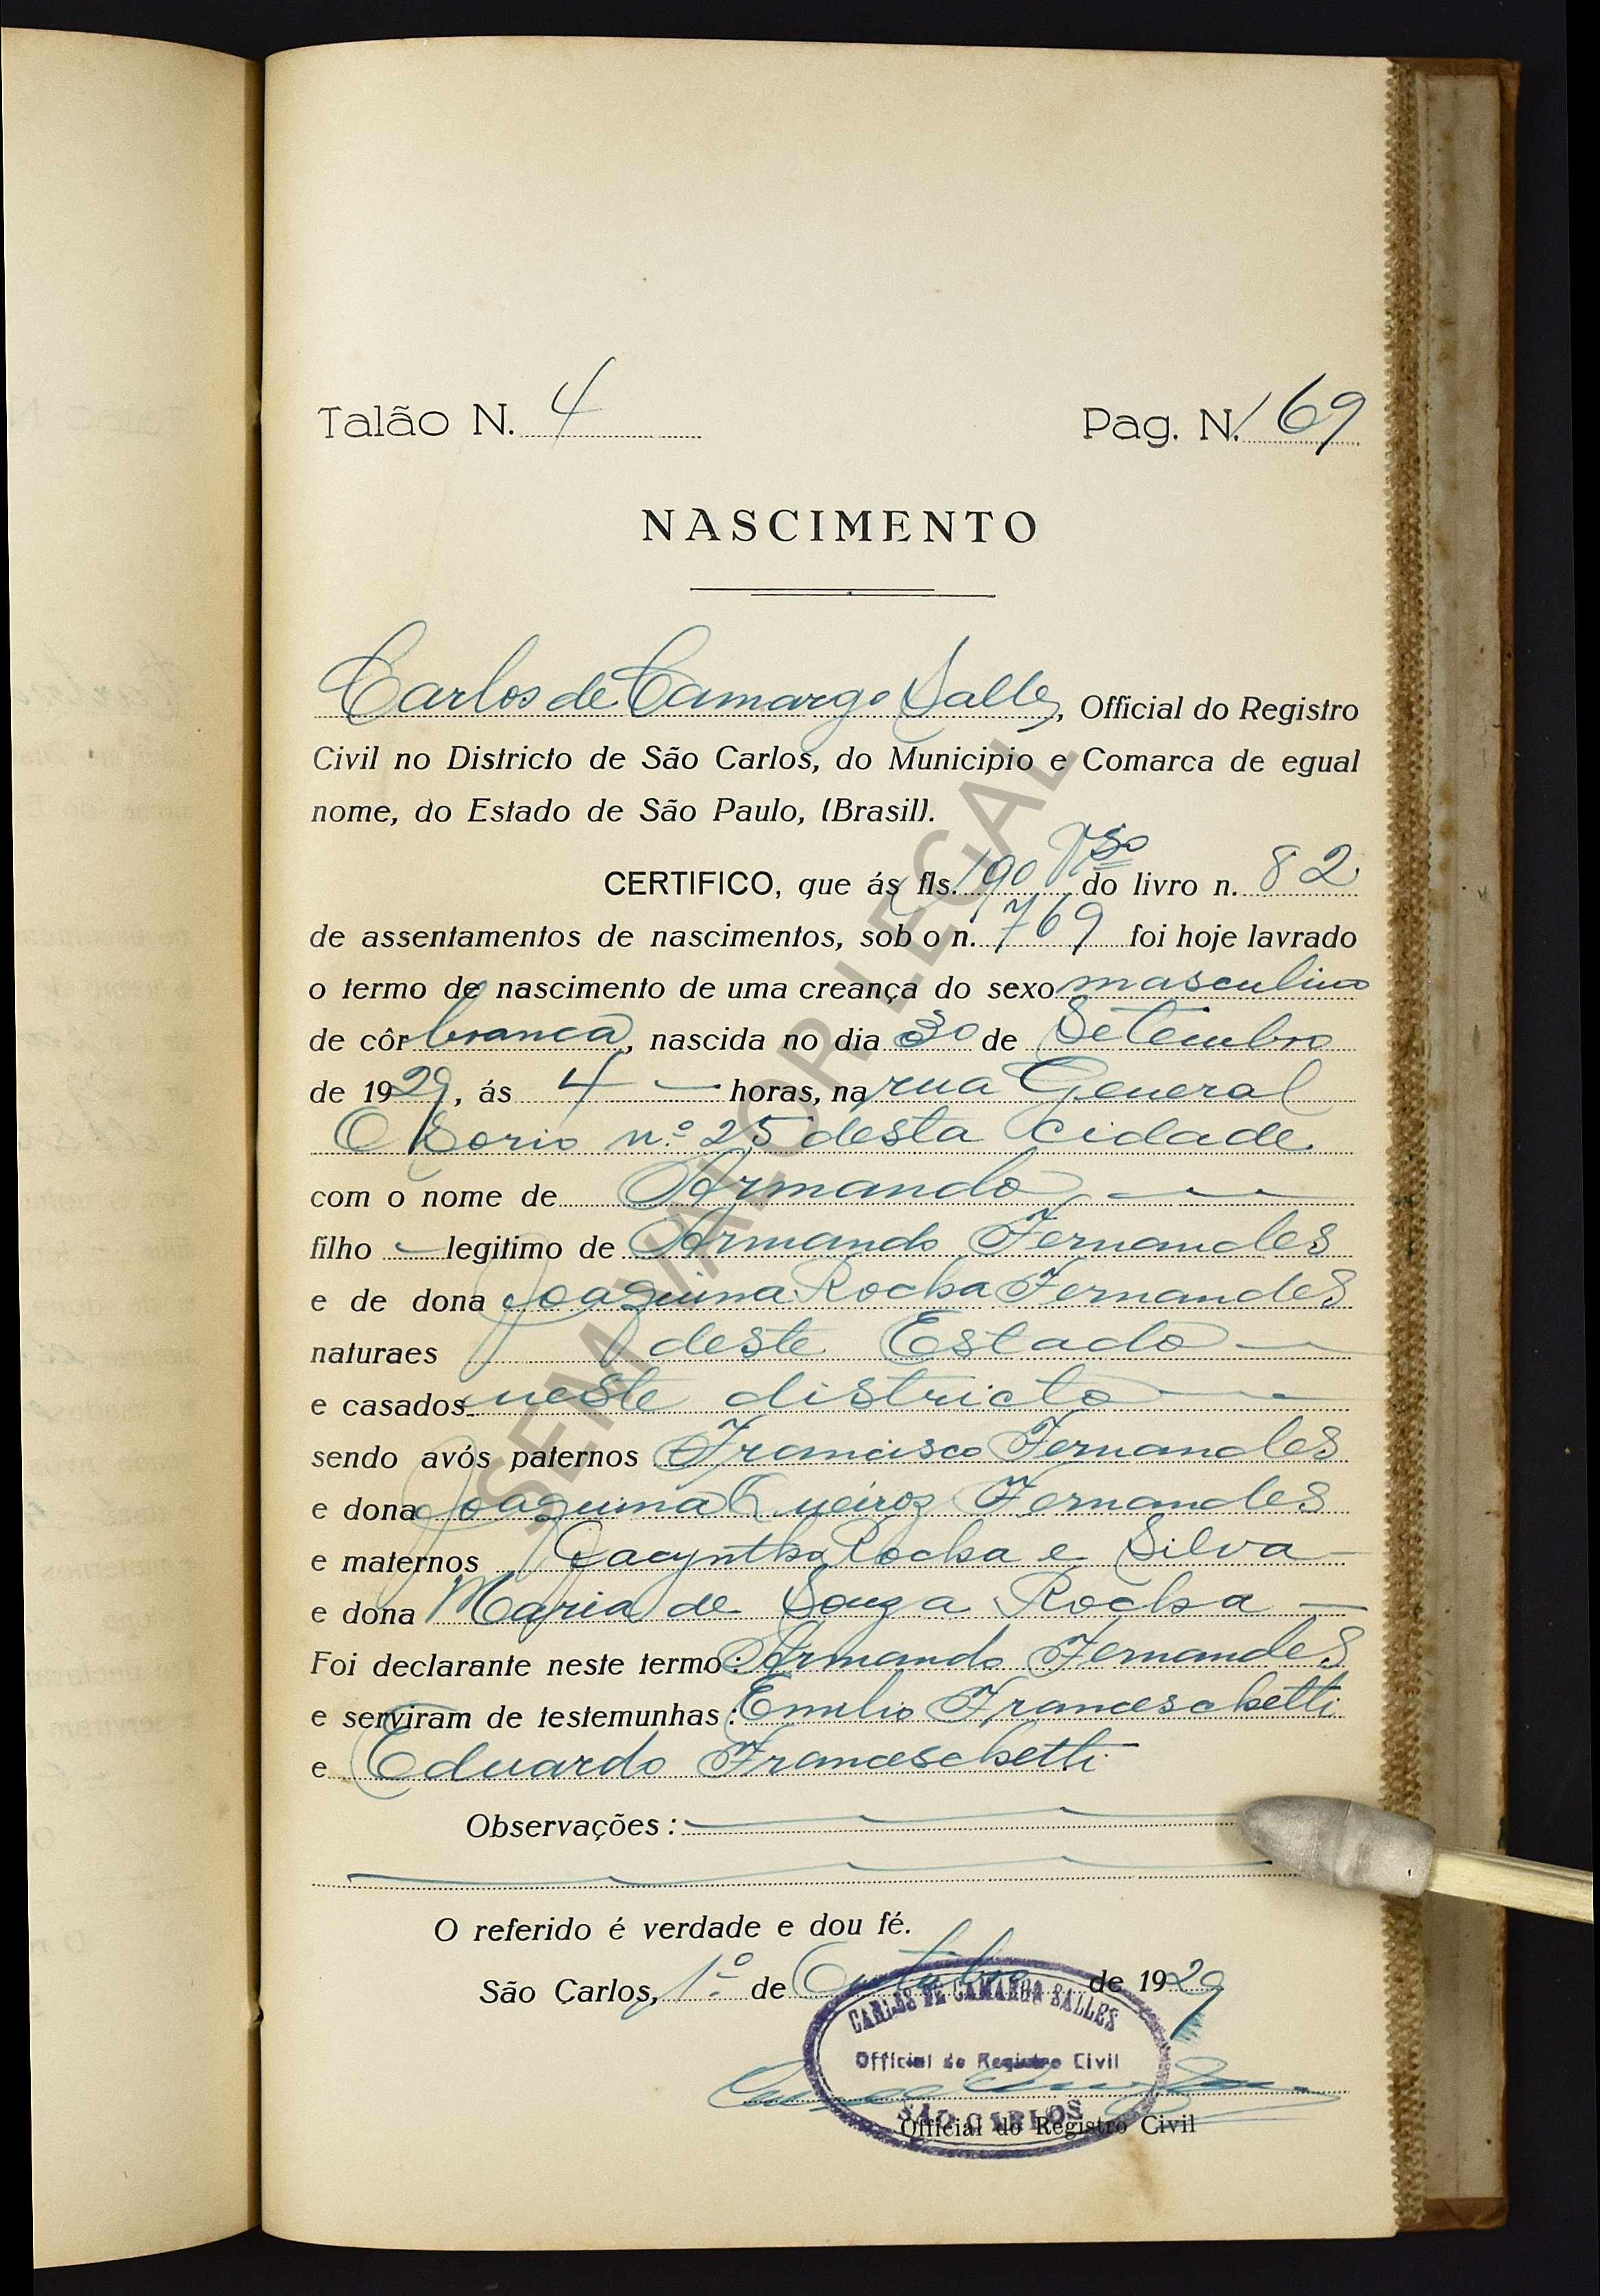 Talão N. 4 Pag. N. 169
NASCIMENTO
Carlos de Camargo Salles, Official do Registro
Civil no Districto de São Carlos, do Municipio e Comarca de egual
nome, do Estado de São Paulo, (Brasil).
CERTIFICO, que ás fls. 190 Vso do livro n. 82
de assentamentos de nascimentos, sob o n. 769 foi hoje lavrado
o termo de nascimento de uma creança do sexo masculino
de côr branca, nascida no dia 30 de Setembro
de 1929, ás 4 horas, na rua General
Osorio nº 25 desta cidade
com o nome de Armando,
filho legitimo de Armando Fernandes
e de dona Joaquina Rocha Fernandes
naturaes deste Estado
e casados neste districto
sendo avós paternos Francisco Fernandes
e dona Joaquina Queiroz Fernandes
e maternos Jacyntho Rocha e Silva
e dona Maria de Souza Rocha
Foi declarante neste termo: Armando Fernandes
e serviram de testemunhas: Emilio Franceschetti
e Eduardo Franceschetti
Observações:
O referido é verdade e dou fé.
São Carlos, 1º de Outubro de 1929
CARLOS DE CAMARGO SALLES
Official do Registro Civil
SÃO CARLOS
Official do Registro Civil
SEM VALOR LEGAL